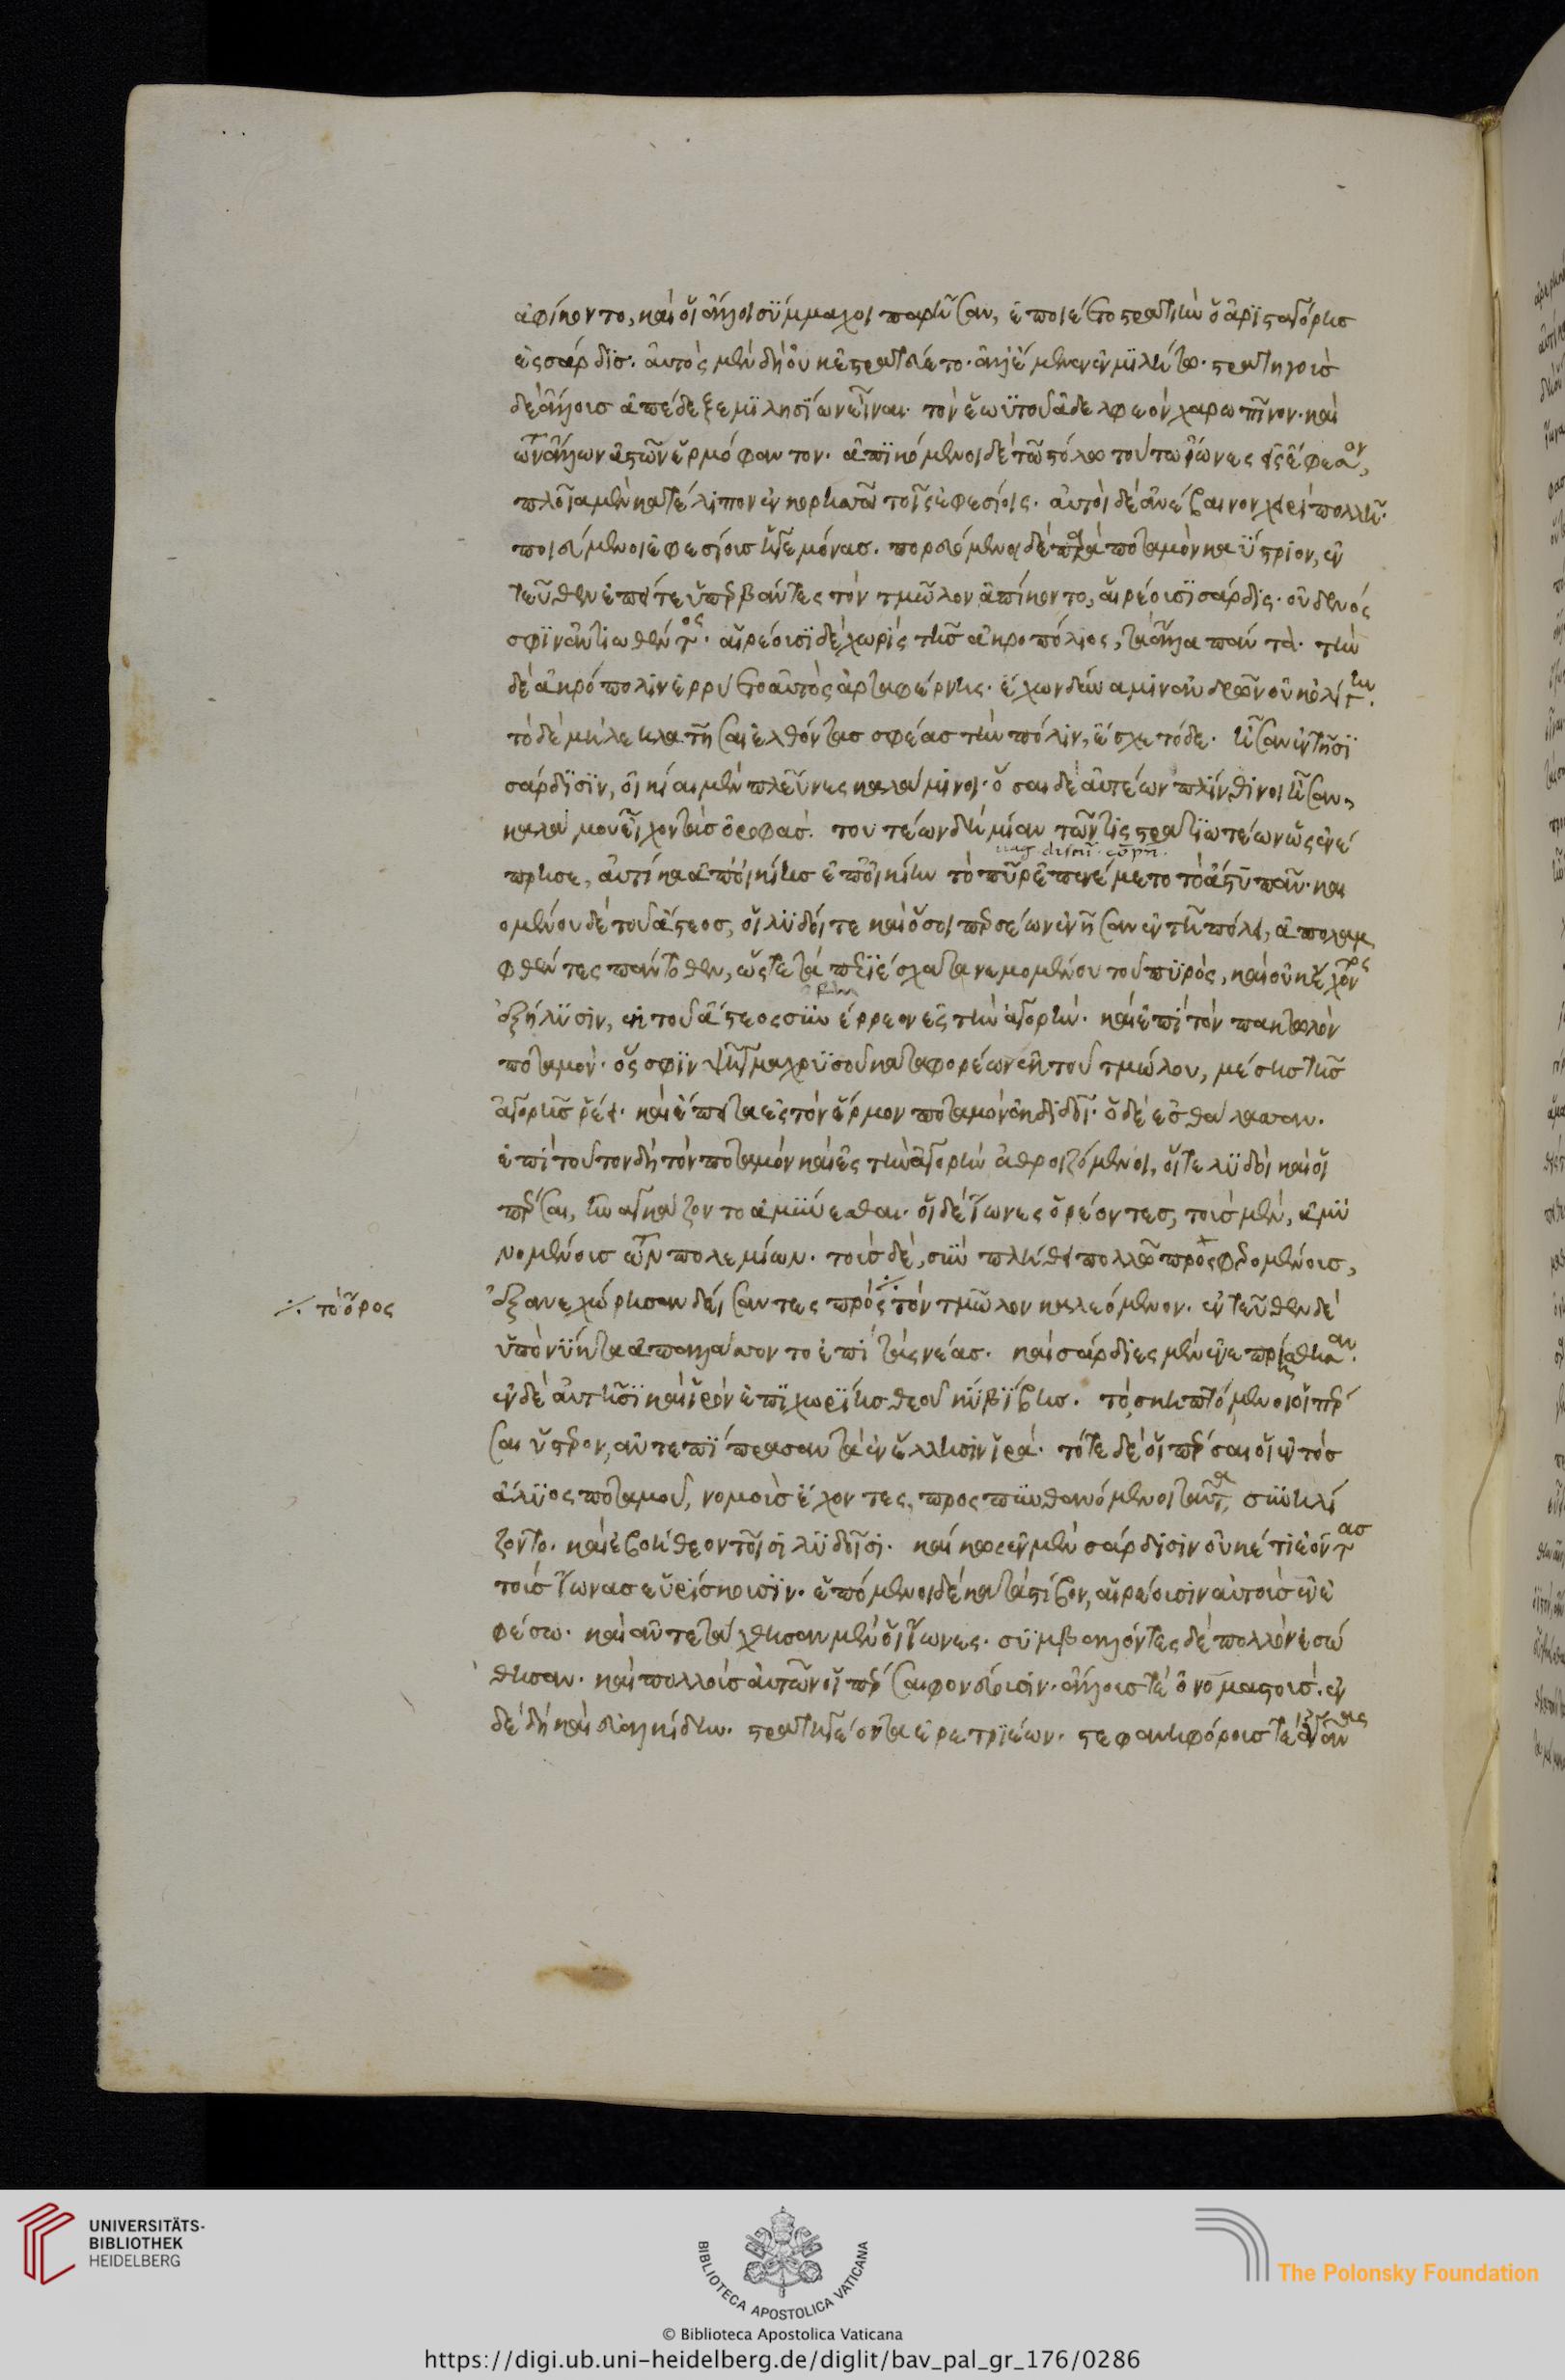 ἀφίκοντο, καὶ οἱ ἄλλοι σύμμαχοι παρῆσαν, ἐποιέετο στρατηίην ὁ ἀρισταγόρης
ἐς σάρδις. αὐτὸς μὲν δὴ οὐκ ἐστρατεύετο. ἀλλ' ἔμενεν ἐν μιλήτω. στρατηγοὺς
δὲ ἄλλους ἀπέδεξε μιλησίων εἶναι. τὸν ἑωυτοῦ ἀδελφεὸν χαροπῖνον. καὶ
τῶν ἄλλων ἀστῶν ἑρμόφαντον. ἀπικόμενοι δὲ τῶ στόλω τούτω ἴωνες ἐς ἔφεσον,
πλοῖα μὲν κατέλιπον ἐν κορησῶ τοῖς ἐφεσίοις. αὐτοὶ δὲ ἀνέβαινον χειρὶ πολλῆ.
ποιεύμενοι ἐφεσίους ἡγεμόνας. πορευόμενοι δὲ παρὰ ποταμὸν καΰστριον, ἐν
τεῦθεν ἐπείτε ὑπερβάντες τὸν τμῶλον ἀπίκοντο, αἱρέουσι σάρδις. οὐδενός
σφιν ἀντιωθέντος. αἱρέουσι δὲ χωρὶς τῆς ἀκροπόλιος, τὰ ἄλλα πάντα. τὴν
δὲ ἀκρόπολιν ἐρρύετο αὐτὸς ἀρταφέρνης. ἔχων δύναμιν ἀνδρῶν οὐκ ὀλίγην.
τὸ δὲ μὴ λεηλατῆσαι ἑλόντας σφέας τὴν πόλιν, ἔσχε τόδε. ἦσαν ἐν τῆσι
σάρδισιν, οἰκίαι μὲν πλεῦνες καλάμιναι. ὅσαι δὲ αὐτέων πλίνθιναι ἦσαν,
καλάμου εἶχον τὰς ὀροφάς. τουτέων δὴ μίαν τῶν τις στρατιωτέων ὡς ἐνέ
πρησε, αὐτίκα ἀπ' οἰκίης ἐπ' οἰκίην τὸ πῦρ ἐπενέμετο τὸ ἄστυ πᾶν. και
ομένου δὲ τοῦ ἄστεος, οἱ λυδοί τε καὶ ὅσοι περσέων ἐνῆσαν ἐν τῆ πόλει, ἀπολαμ
φθέντες πάντοθεν, ὥστε τὰ περιέσχατα νεμομένου τοῦ πυρὸς, καὶ οὐκ ἔχοντες
ἐξήλυσιν, ἐκ τοῦ ἄστεος συνέρρεον ἐς τὴν ἀγορήν. καὶ ἐπὶ τὸν πακτωλὸν
ποταμόν. ὅς σφιν ψῆγμα χρυσοῦ καταφορέων ἐκ τοῦ τμώλου, μέσης τῆς
ἀγορῆς ῥέει. καὶ ἔπειτα ἐς τὸν ἕρμον ποταμὸν ἐκδιδοῖ. ὁ δὲ ἐς θάλασσαν.
ἐπὶ τοῦτον δὴ τὸν ποταμὸν καὶ ἐς τὴν ἀγορὴν ἀθροιζόμενοι, οἵ τε λυδοὶ καὶ οἱ
πέρσαι, ἠναγκάζοντο ἀμύνεσθαι. οἱ δὲ ἴωνες ὁρέοντες, τοὺς μὲν, ἀμυ
νομένους τῶν πολεμίων. τοὺς δὲ, σὺν πλήθει πολλῶ προσφερομένους,
ἐξανεχώρησαν δείσαντες πρὸς ⁒ τὸν τμῶλον καλεόμενον. ἐντεῦθεν δὲ
⁒ τὸ ὄρος
ὑπὸ νύκτα ἀπαλλάσσοντο ἐπὶ τὰς νέας. καὶ σάρδιες μὲν ἐνεπρήσθησαν.
ἐν δὲ αὐτῆσι καὶ ἱρὸν ἐπιχωρίης θεοῦ κυβήβης. τὸ σκηπτόμενοι οἱ πέρ
σαι ὕστερον, ἀντεπίπρασαν τὰ ἐν ἕλλησιν ἱρά. τότε δὲ οἱ πέρσαι οἱ ἐντὸς
ἅλυος ποταμοῦ, νομοὺς ἔχοντες, προσπυνθανόμενοι ταῦτα, συνηλί
ζοντο. καὶ ἐβοήθεον τοῖσι λυδοῖσι. καί κως ἐν μὲν σάρδισιν οὐκέτι ἐόντας
τοὺς ἴωνας εὑρίσκουσιν. ἑπόμενοι δὲ κατὰ στίβον, αἱρέουσιν αὐτοὺς ἐν ἐ
φέσω. καὶ ἀντετάχθησαν μὲν οἱ ἴωνες. συμβαλόντες δὲ πολλὸν ἑσσώ
θησαν. καὶ πολλοὺς αὐτῶν οἱ πέρσαι φονεύουσιν. ἄλλους τε ὀνομαστούς. ἐν
δὲ δὴ καὶ εὐαλκίδην. στρατηγέοντα ἐρετριέων. στεφανηφόρους τε ἀγῶνας
UNIVERSITÄTS-
BIBLIOTHEK
HEIDELBERG
BIBLIOTECA APOSTOLICA VATICANA
The Polonsky Foundation
© Biblioteca Apostolica Vaticana
https://digi.ub.uni-heidelberg.de/diglit/bav_pal_gr_176/0286